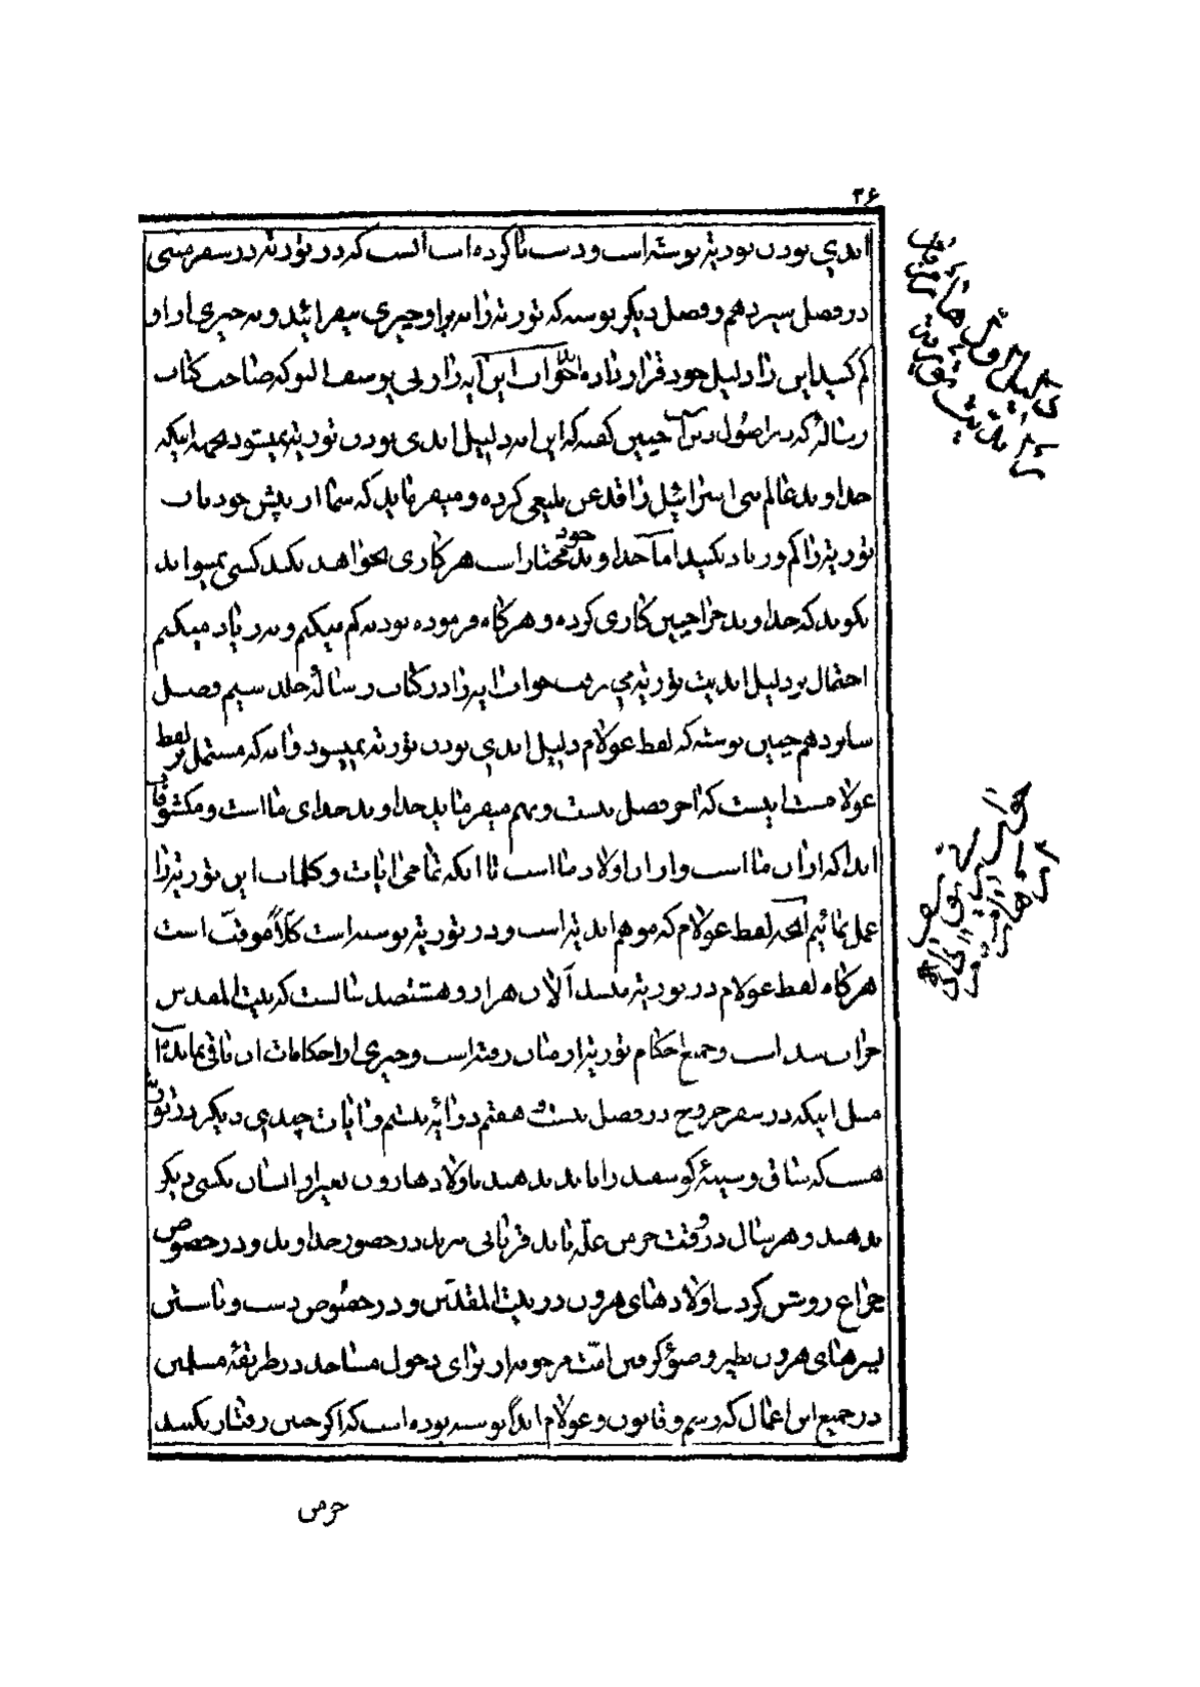 ۳۶
ابدی بودن توریة نوشته است و دست ناکرده است آنست که در توریة در سفر مثنی
در فصل سیزدهم و فصل دیگر نوشته که توریة را نه براو چیزی بیفزائید و نه چیزی از او
کم کنید این را دلیل خود قرار داده جواب این آیه را ربی یوسف البو که صاحب کتاب
رساله که در اصول دین است چنین گفته که این ایه دلیل ابدی بودن توریة نمیشود بجهه اینکه
خداوند عالم بنی اسرائیل را قدغن بلیغی کرده و میفرماید که شما از پیش خود تان
توریة را کم و زیاد نکنید اما خداوند خود مختار است هر کاری بخواهد بکند کسی نمیتواند
بگوید که خداوند چرا چنین کاری کرده و هر گاه فرموده بود نه کم میکنم و نه زیاد میکنم
احتمال بر دلیل ابدیت توریة می رفت جواب ایه را در کتاب رساله جلد سیم فصل
شانزدهم چنین نوشته که لفظ عولام دلیل ابدی بودن توریة نمیشود و ایه که مشتمل بر لفظ
عولام است اینست که اخر فصل بیست و نهم میفرماید خداوند خدای ما است و مکشوفات
ابدا که از ان ما است و از ان اولاد ما است تا اینکه تمامی ایات و کلمات این توریة را
عمل نمائیم الخ لفظ عولام که موهم ابدیة است و در توریة نوشته است کلاً موقت است
هر گاه لفظ عولام در توریة ابد باشد الان هزار و هشتصد سالست که بیت المقدس
خراب شده است و جمیع احکام توریة از میان رفته است و چیزی از احکامات ان باقی نمانده
مثل اینکه در سفر خروج در فصل بیست و هفتم در ایه بیستم و ایات چندی دیگر در توریة
هست که ساق و سینه گوسفند را باید بدهند باولاد هارون بغیر از ایشان بکسی دیگر
ندهند و هر سال در وقت خرمن غله باید قربانی ببرند در حضور خداوند و در خصوص
چراغ روشن کردن اولاد های هرون در بیت المقدس و در خصوص دست و پا شستن
پسرهای هرون نظیر وضو گرفتن امت مرحومه از برای دخول مساجد در طریقه مسلمین
در جمیع این اعمال که رسم و قانون و عولام ابدا نوشته بوده است که اگر چنین رفتار نکنند